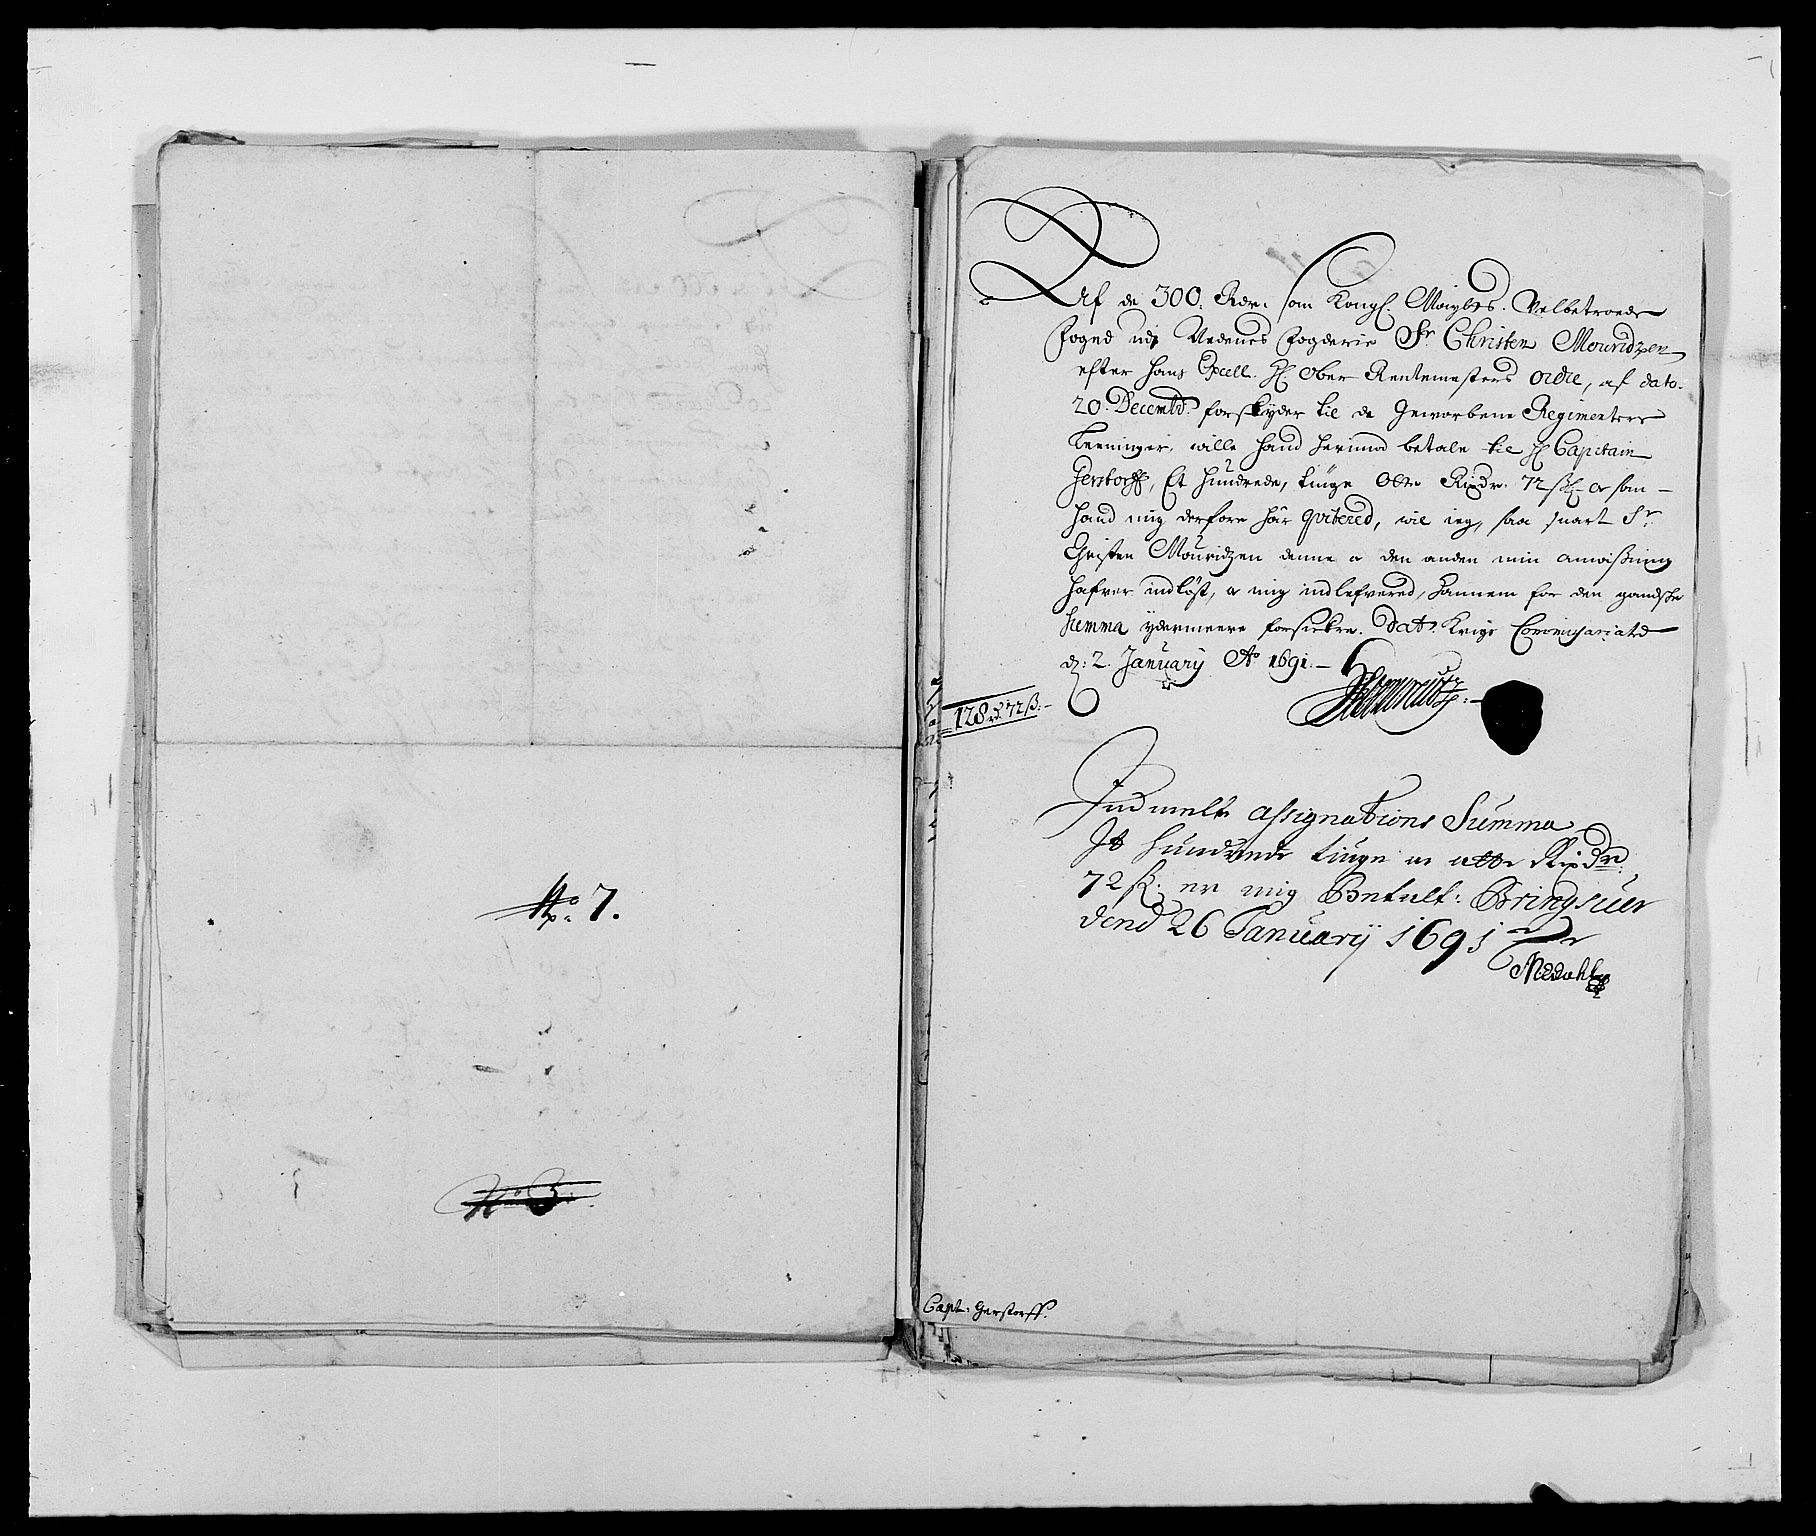 No: 7.
Af de 300. Rdr. som Kongl. Maÿtts. Velbetroede
Foged udj Nedenes Fogderie Sr. Christen Mouridzen
efter hans Excell. H. Ober Rentemesters ordre, af dato
20. Decembr. forskyder til de Geworbene Regimenters
terninger, wille hand herimod betale til H. Capitain
Gerstorff, Et hundrede, tiuge Otte Rixdr. 72 sk. og som
hand mig derfore har qvitered, wil ieg, saa snart Sr.
Christen Mouridzen denne og den anden min anwisning
hafver indløst, og mig indlefvered, hannem for den gandske
Summa ydermeere forsickre. Dat. Krigs Commissariatd
d: 2. January Ao 1691.
128 rd 72 ß.
Indmelte assignations Summa
It hundrede tiuge og otte Rixdr
72 sk. er mig Betalt. Bringsuer
dend 26 Januarij 1691
Capt. Gerstorff.